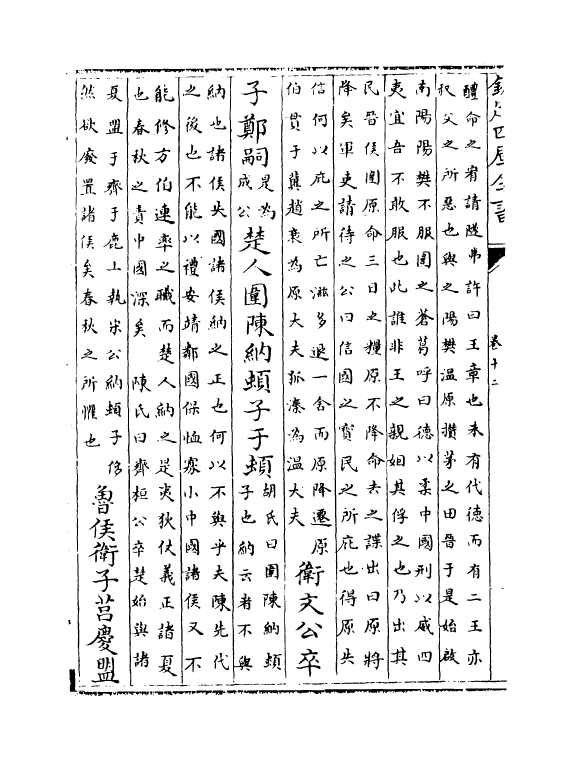 欽定四庫全書
卷十二
醴命之宥請隧弗許曰王章也未有代德而有二王亦
叔父之所惡也與之陽樊溫原攢茅之田晉于是始啟
南陽陽樊不服圍之蒼葛呼曰德以柔中國刑以威四
夷宜吾不敢服也此誰非王之親姻其俘之也乃出其
民晉侯圍原命三日之糧原不降命去之諜出曰原將
降矣軍吏請待之公曰信國之寶民之所庇也得原失
信何以庇之所亡滋多退一舍而原降遷原
伯貫于冀趙衰為原大夫狐溱為溫大夫
衛文公卒
子鄭嗣是為成公楚人圍陳納頓子于頓胡氏曰圍陳納頓子也納云者不與
納也諸侯失國諸侯納之正也何以不與乎夫陳先代
之後也不能以禮安靖鄰國保恤寡小中國諸侯又不
能修方伯連率之職而楚人納之是夷狄仗義正諸夏
也春秋之責中國深矣 陳氏曰齊桓公卒楚始與諸
夏盟于齊于鹿上執宋公納頓子侈
然欲廢置諸侯矣春秋之所懼也
魯侯衛子莒慶盟